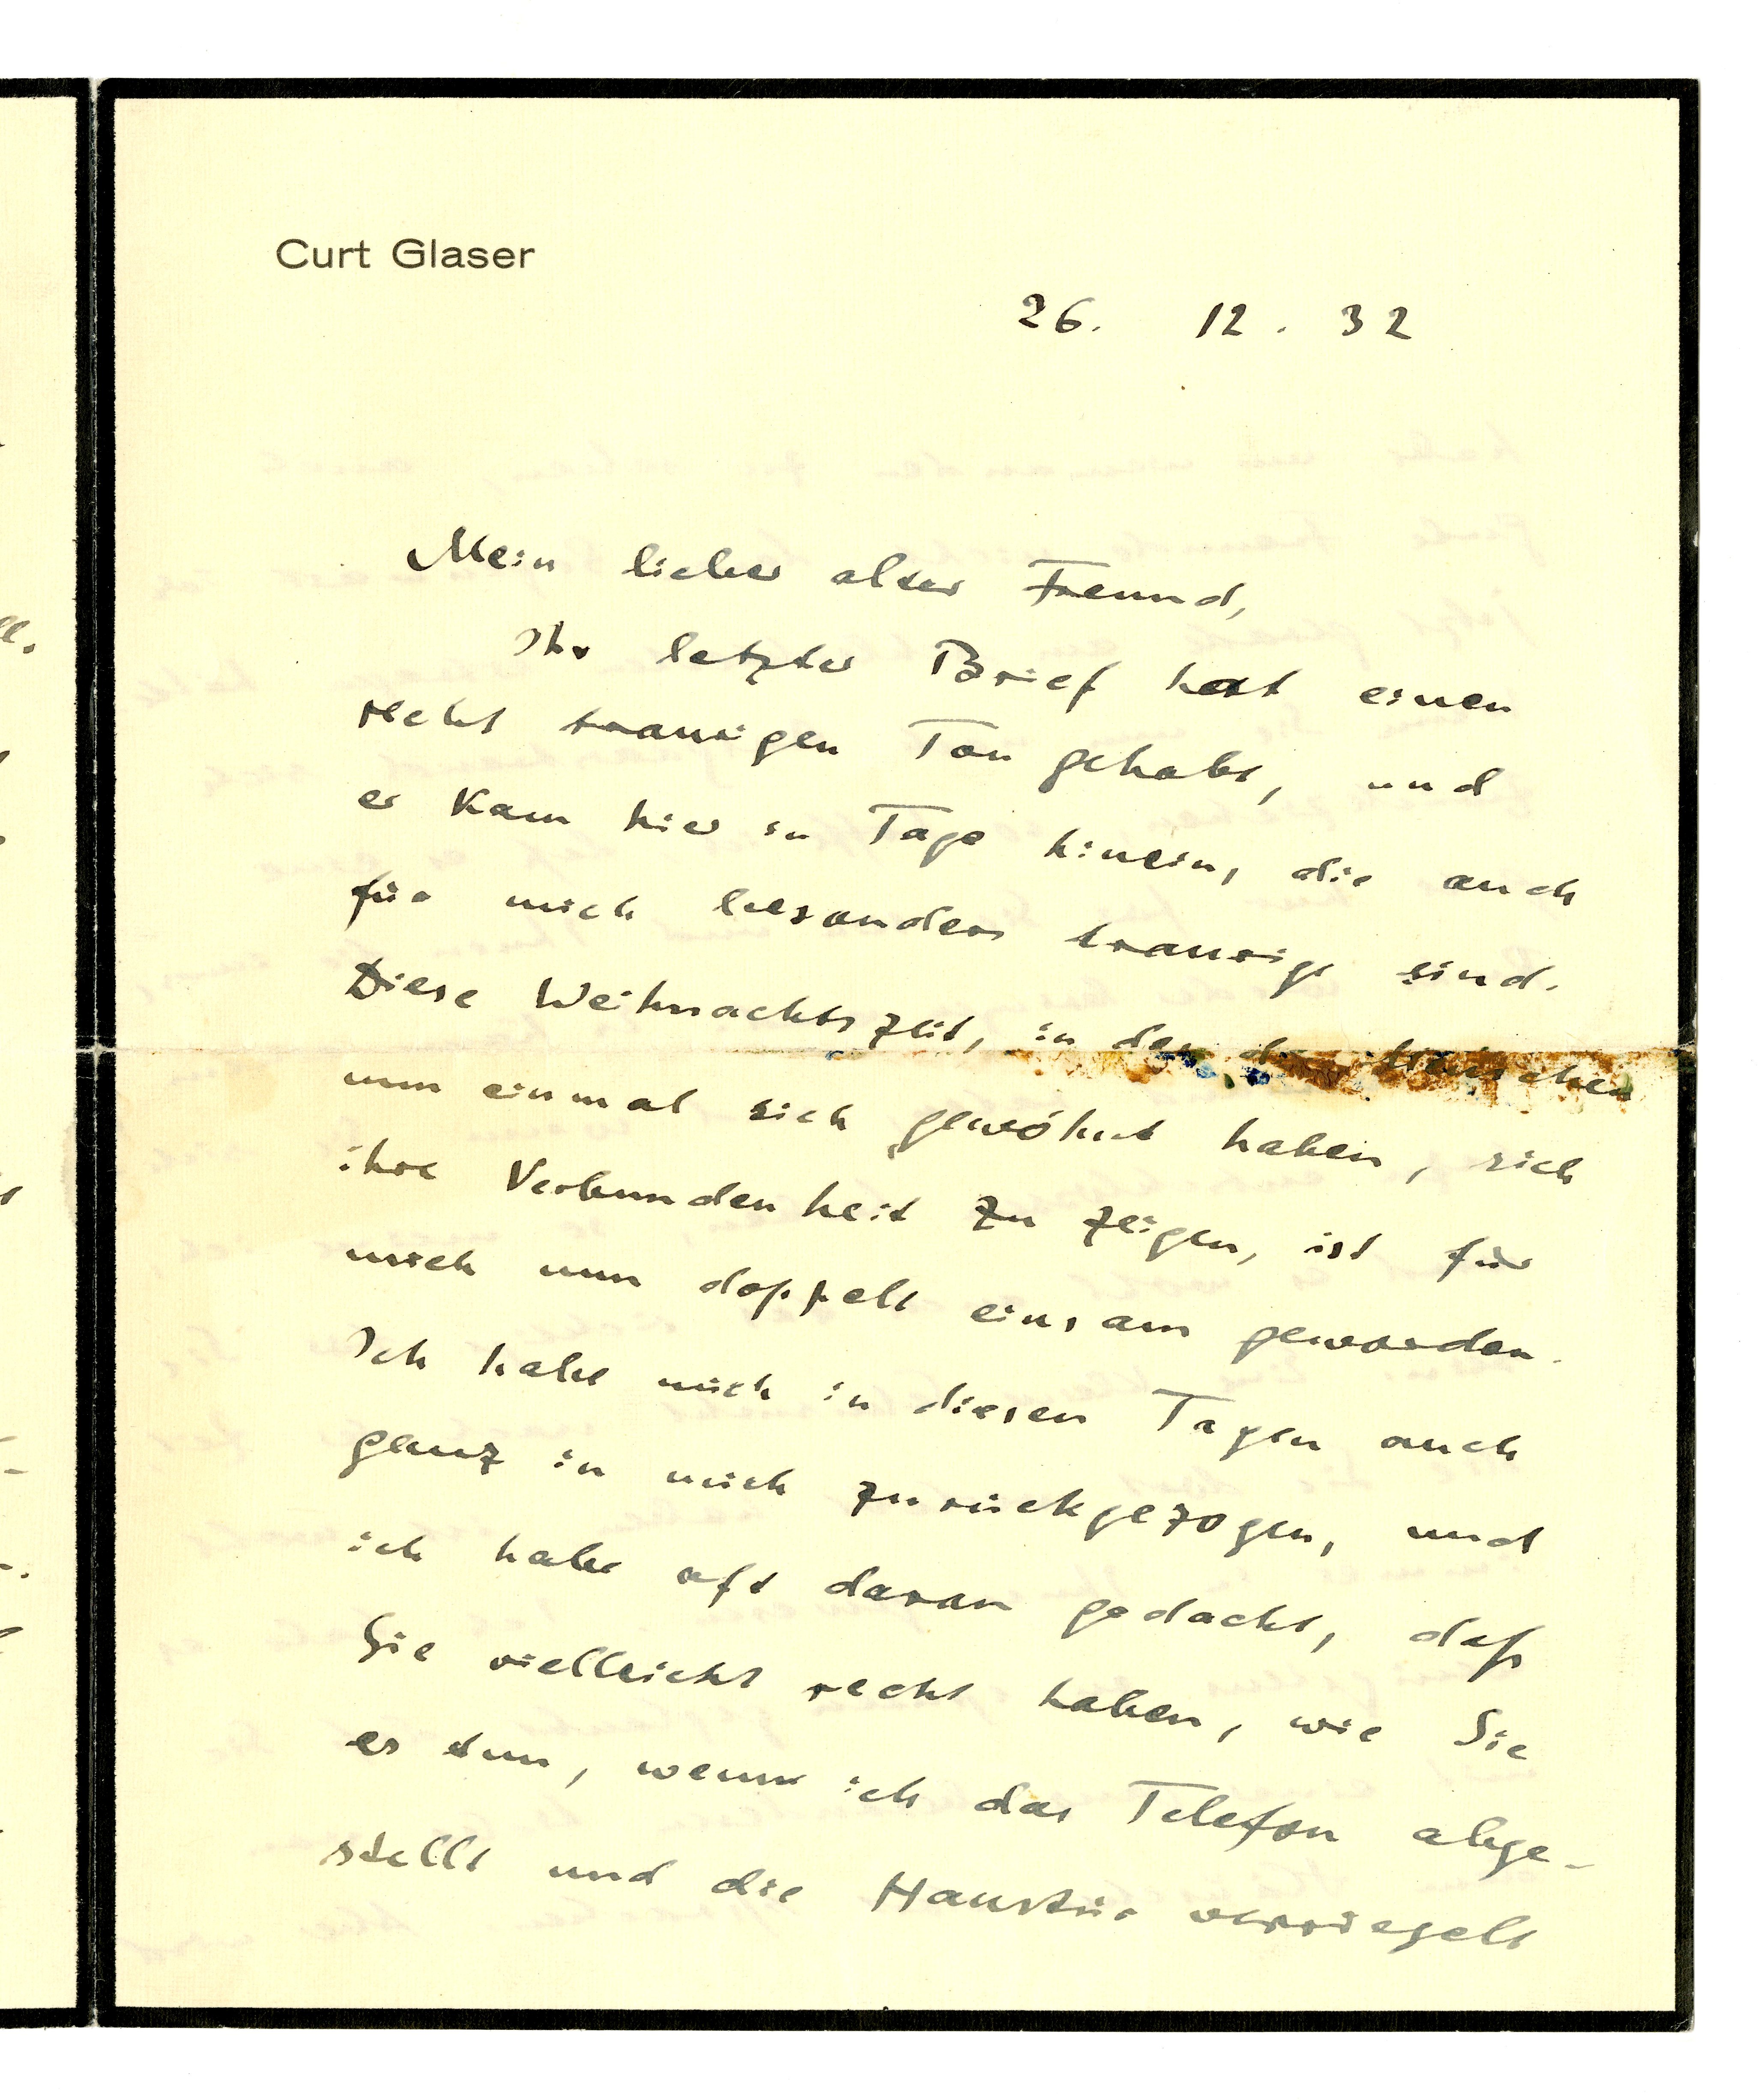 Curt Glaser
26. 12. 32
Mein lieber alter Freund,
Ihr letzter Brief hat einen
recht traurigen Ton gehabt, und
er kam hier in Tage hinein, die auch
für mich besonders traurige sind.
Diese Weihnachtszeit, in der die Menschen
nun einmal sich gewöhnt haben, sich
ihre Verbundenheit zu zeigen, ist für
mich nun doppelt einsam geworden.
Ich habe mich in diesen Tagen auch
ganz in mich zurückgezogen, und
ich habe oft daran gedacht, daß
Sie vielleicht recht haben, wie Sie
es tun, wenn ich das Telefon abge-
stellt und die Haustür verriegelt